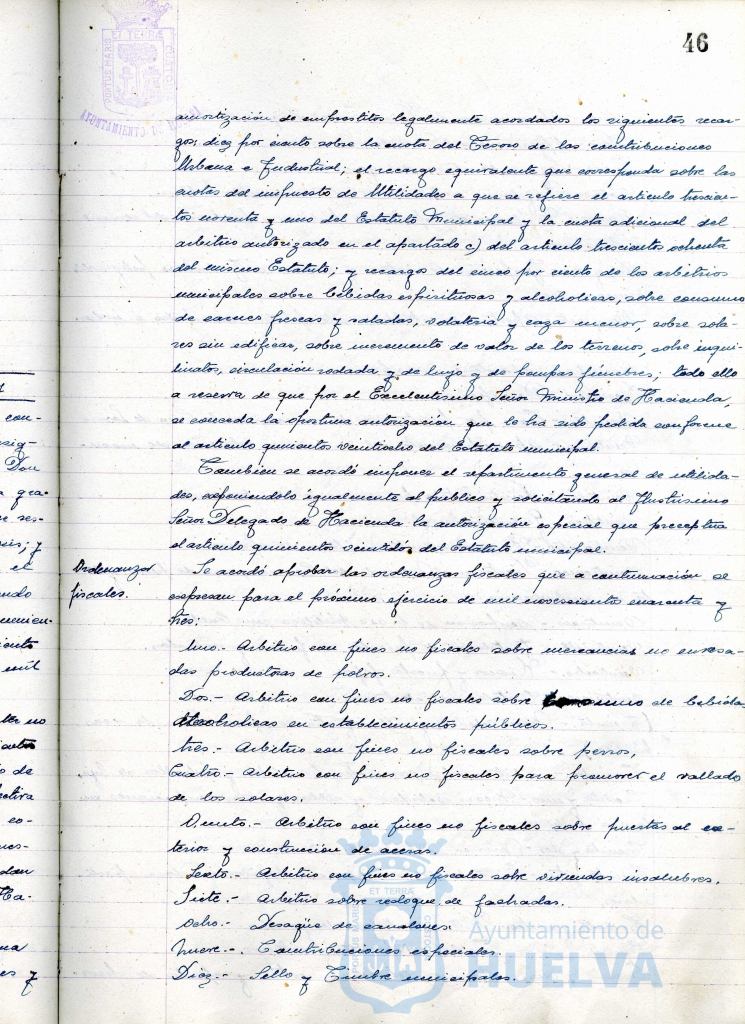 46
PORTUS MARIS ET TERRAE CUSTO
AYUNTAMIENTO DE
amortización de emprestitos legalmente acordados los siguientes recar-
gos, diez por ciento sobre la cuota del Tesoro de las contribuciones
Urbana e Industrial; el recargo equivalente que corresponda sobre las
cuotas del impuesto de Utilidades a que se refiere el articulo trescien-
tos noventa y uno del Estatuto Municipal y la cuota adicional del
arbitrio autorizado en el apartado c) del articulo trescientos ochenta
del mismo Estatuto; y recargos del cinco por ciento de los arbitrios
municipales sobre bebidas espirituosas y alcoholicas, sobre consumo
de carnes frescas y saladas, volateria y caza menor, sobre sola-
res sin edificar, sobre incremento de valor de los terrenos, sobre inqui-
linatos, circulación rodada y de lujo y de pompas fúnebres; todo ello
a reserva de que por el Excelentisimo Señor Ministro de Hacienda,
se conceda la oportuna autorización que le ha sido pedida conforme
al articulo quinientos veintiocho del Estatuto municipal.
Tambien se acordó imponer el repartimiento general de utilida-
des, exponiendolo igualmente al publico y solicitando al Ilustrisimo
Señor Delegado de Hacienda la autorización especial que preceptua
el articulo quinientos veintidós del Estatuto municipal.
Ordenanzas
fiscales.
Se acordó aprobar las ordenanzas fiscales que a continuación se
expresan para el próximo ejercicio de mil novecientos cuarenta y
tres:
Uno.- Arbitrio con fines no fiscales sobre mercancias no envasa-
das productoras de polvos.
Dos.- Arbitrio con fines no fiscales sobre consumo de bebidas
alcoholicas en establecimientos públicos.
tres.- Arbitrio con fines no fiscales sobre perros,
Cuatro.- Arbitrio con fines no fiscales para promover el vallado
de los solares.
Quinto.- Arbitrio con fines no fiscales sobre puertas al ex-
terior y construcción de aceras.
Sexto.- Arbitrio con fines no fiscales sobre viviendas insalubres.
Siete.- Arbitrio sobre revoque de fachadas.
Ocho.- Desagüe de canalones.
Nueve.- Contribuciones especiales.
Diez.- Sello y Timbre municipales.
Ayuntamiento de
HUELVA